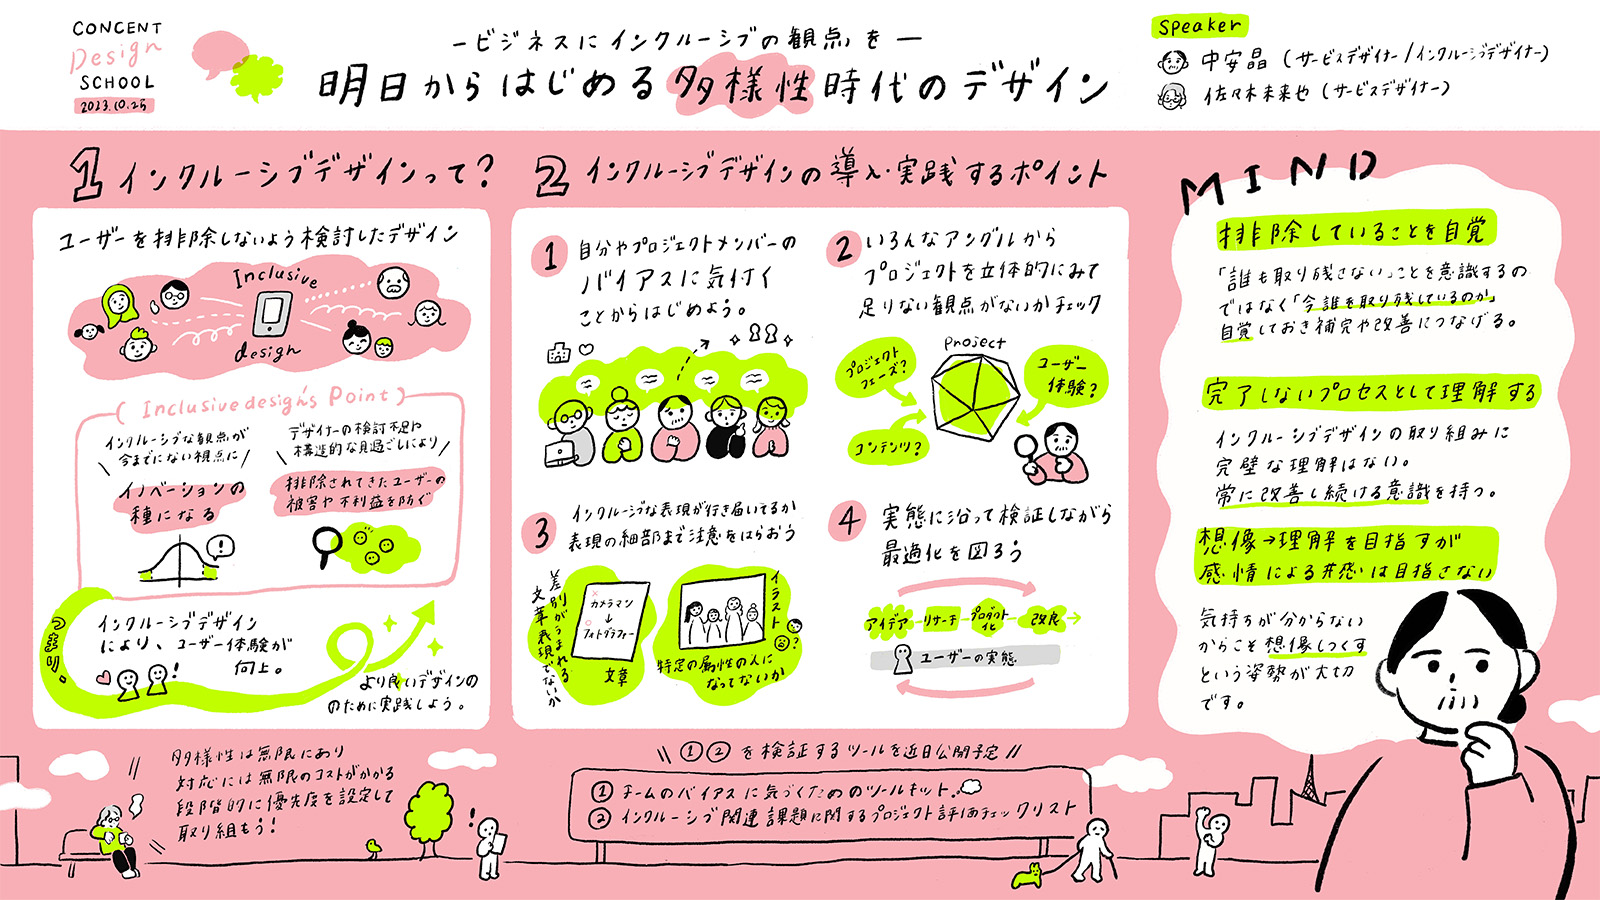 CONCENT
Design
SCHOOL
2023.10.25
ービジネスにインクルーシブの観点をー
明日からはじめる多様性時代のデザイン
Speaker
中安晶（サービスデザイナー/インクルーシブデザイナー）
佐々木未来也（サービスデザイナー）
1 インクルーシブデザインって？
ユーザーを排除しないよう検討したデザイン
Inclusive
design
Inclusive design's Point
インクルーシブな観点が
今までにない視点に
イノベーションの
種になる
デザイナーの検討不足や
構造的な見過ごしにより
排除されてきたユーザーの
被害や不利益を防ぐ
!
つまり、
インクルーシブデザイン
により、ユーザー体験が
向上。
!
より良いデザインの
のために実践しよう。
2 インクルーシブデザインの導入・実践するポイント
1
自分やプロジェクトメンバーの
バイアスに気付く
ことからはじめよう。
2
いろんなアングルから
プロジェクトを立体的にみて
足りない観点がないかチェック
Project
プロジェクト
フェーズ？
ユーザー
体験？
コンテンツ？
3
インクルーシブな表現が行き届いてるか
表現の細部まで注意をはらおう
差別がうまれる
文章表現でないか
カメラマン
↓
フォトグラファー
文章
イラスト
?
特定の属性の人に
なってないか
4
実態に沿って検証しながら
最適化を図ろう
アイデア
リサーチ
プロダクト
化
改良
ユーザーの実態
MIND
排除していることを自覚
「誰も取り残さない」ことを意識するの
ではなく「今誰を取り残しているのか」
自覚しておき補完や改善につなげる。
完了しないプロセスとして理解する
インクルーシブデザインの取り組みに
完璧な理解はない。
常に改善し続ける意識を持つ。
想像→理解を目指すが
感情による共感は目指さない
気持ちが分からない
からこそ想像しつくす
という姿勢が大切
です。
多様性は無限にあり
対応には無限のコストがかかる
段階的に優先度を設定して
取り組もう！
!
\\ ①②を検証するツールを近日公開予定 //
① チームのバイアスに気づくためのツールキット。
② インクルーシブ関連課題に関するプロジェクト評価チェックリスト